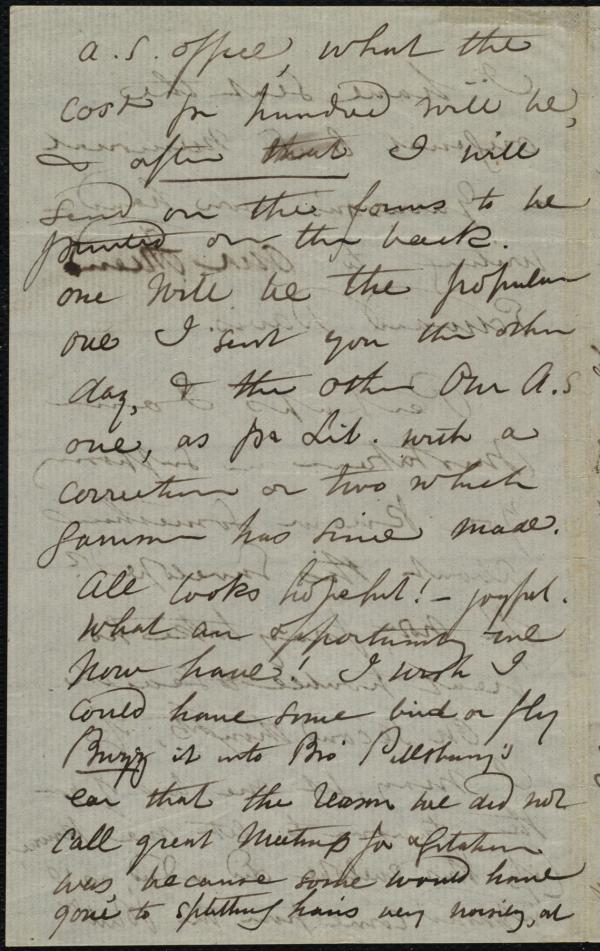 A. S. office, what the
cost per hundred will be,
& after that I will
send on the forms to be
printed on the back.
one will be the popular
one I sent you the other
day, & the other Our A. S
one, as per Lib. with a
correction or two which
Garrison has since made.
All looks hopeful! - joyful.
What an opportunity we
now have! I wish I
could have some bird or fly
Buzz it into Bro Pillsbury's
ear that the reason we did not
call great Meetings for agitation
was because some would have
gone to splitting hairs very noisily, at